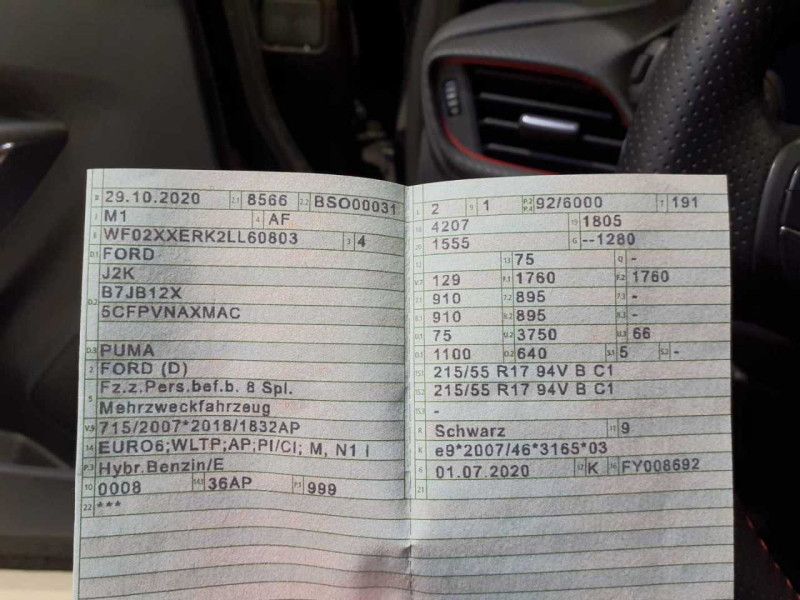 B 29.10.2020 2.1 8566 2.2 BSO00031
J M1 4 AF
E WF02XXERK2LL60803 3 4
D.1 FORD
J2K
D.2 B7JB12X
5CFPVNAXMAC
D.3 PUMA
2 FORD (D)
5 Fz.z.Pers.bef.b. 8 Spl.
Mehrzweckfahrzeug
V.9 715/2007*2018/1832AP
14 EURO6;WLTP;AP;PI/CI; M, N1 I
P.3 Hybr.Benzin/E
10 0008 14.1 36AP P.1 999
22 ***
L 2 9 1 P.2 P.4 92/6000 T 191
18 4207 19 1805
20 1555 G --1280
12 13 75 Q -
V.7 129 F.1 1760 F.2 1760
7.1 910 7.2 895 7.3 -
8.1 910 8.2 895 8.3 -
U.1 75 U.2 3750 U.3 66
O.1 1100 O.2 640 S.1 5 S.2 -
15.1 215/55 R17 94V B C1
15.2 215/55 R17 94V B C1
15.3 -
R Schwarz 11 9
K e9*2007/46*3165*03
6 01.07.2020 17 K 16 FY008692
21